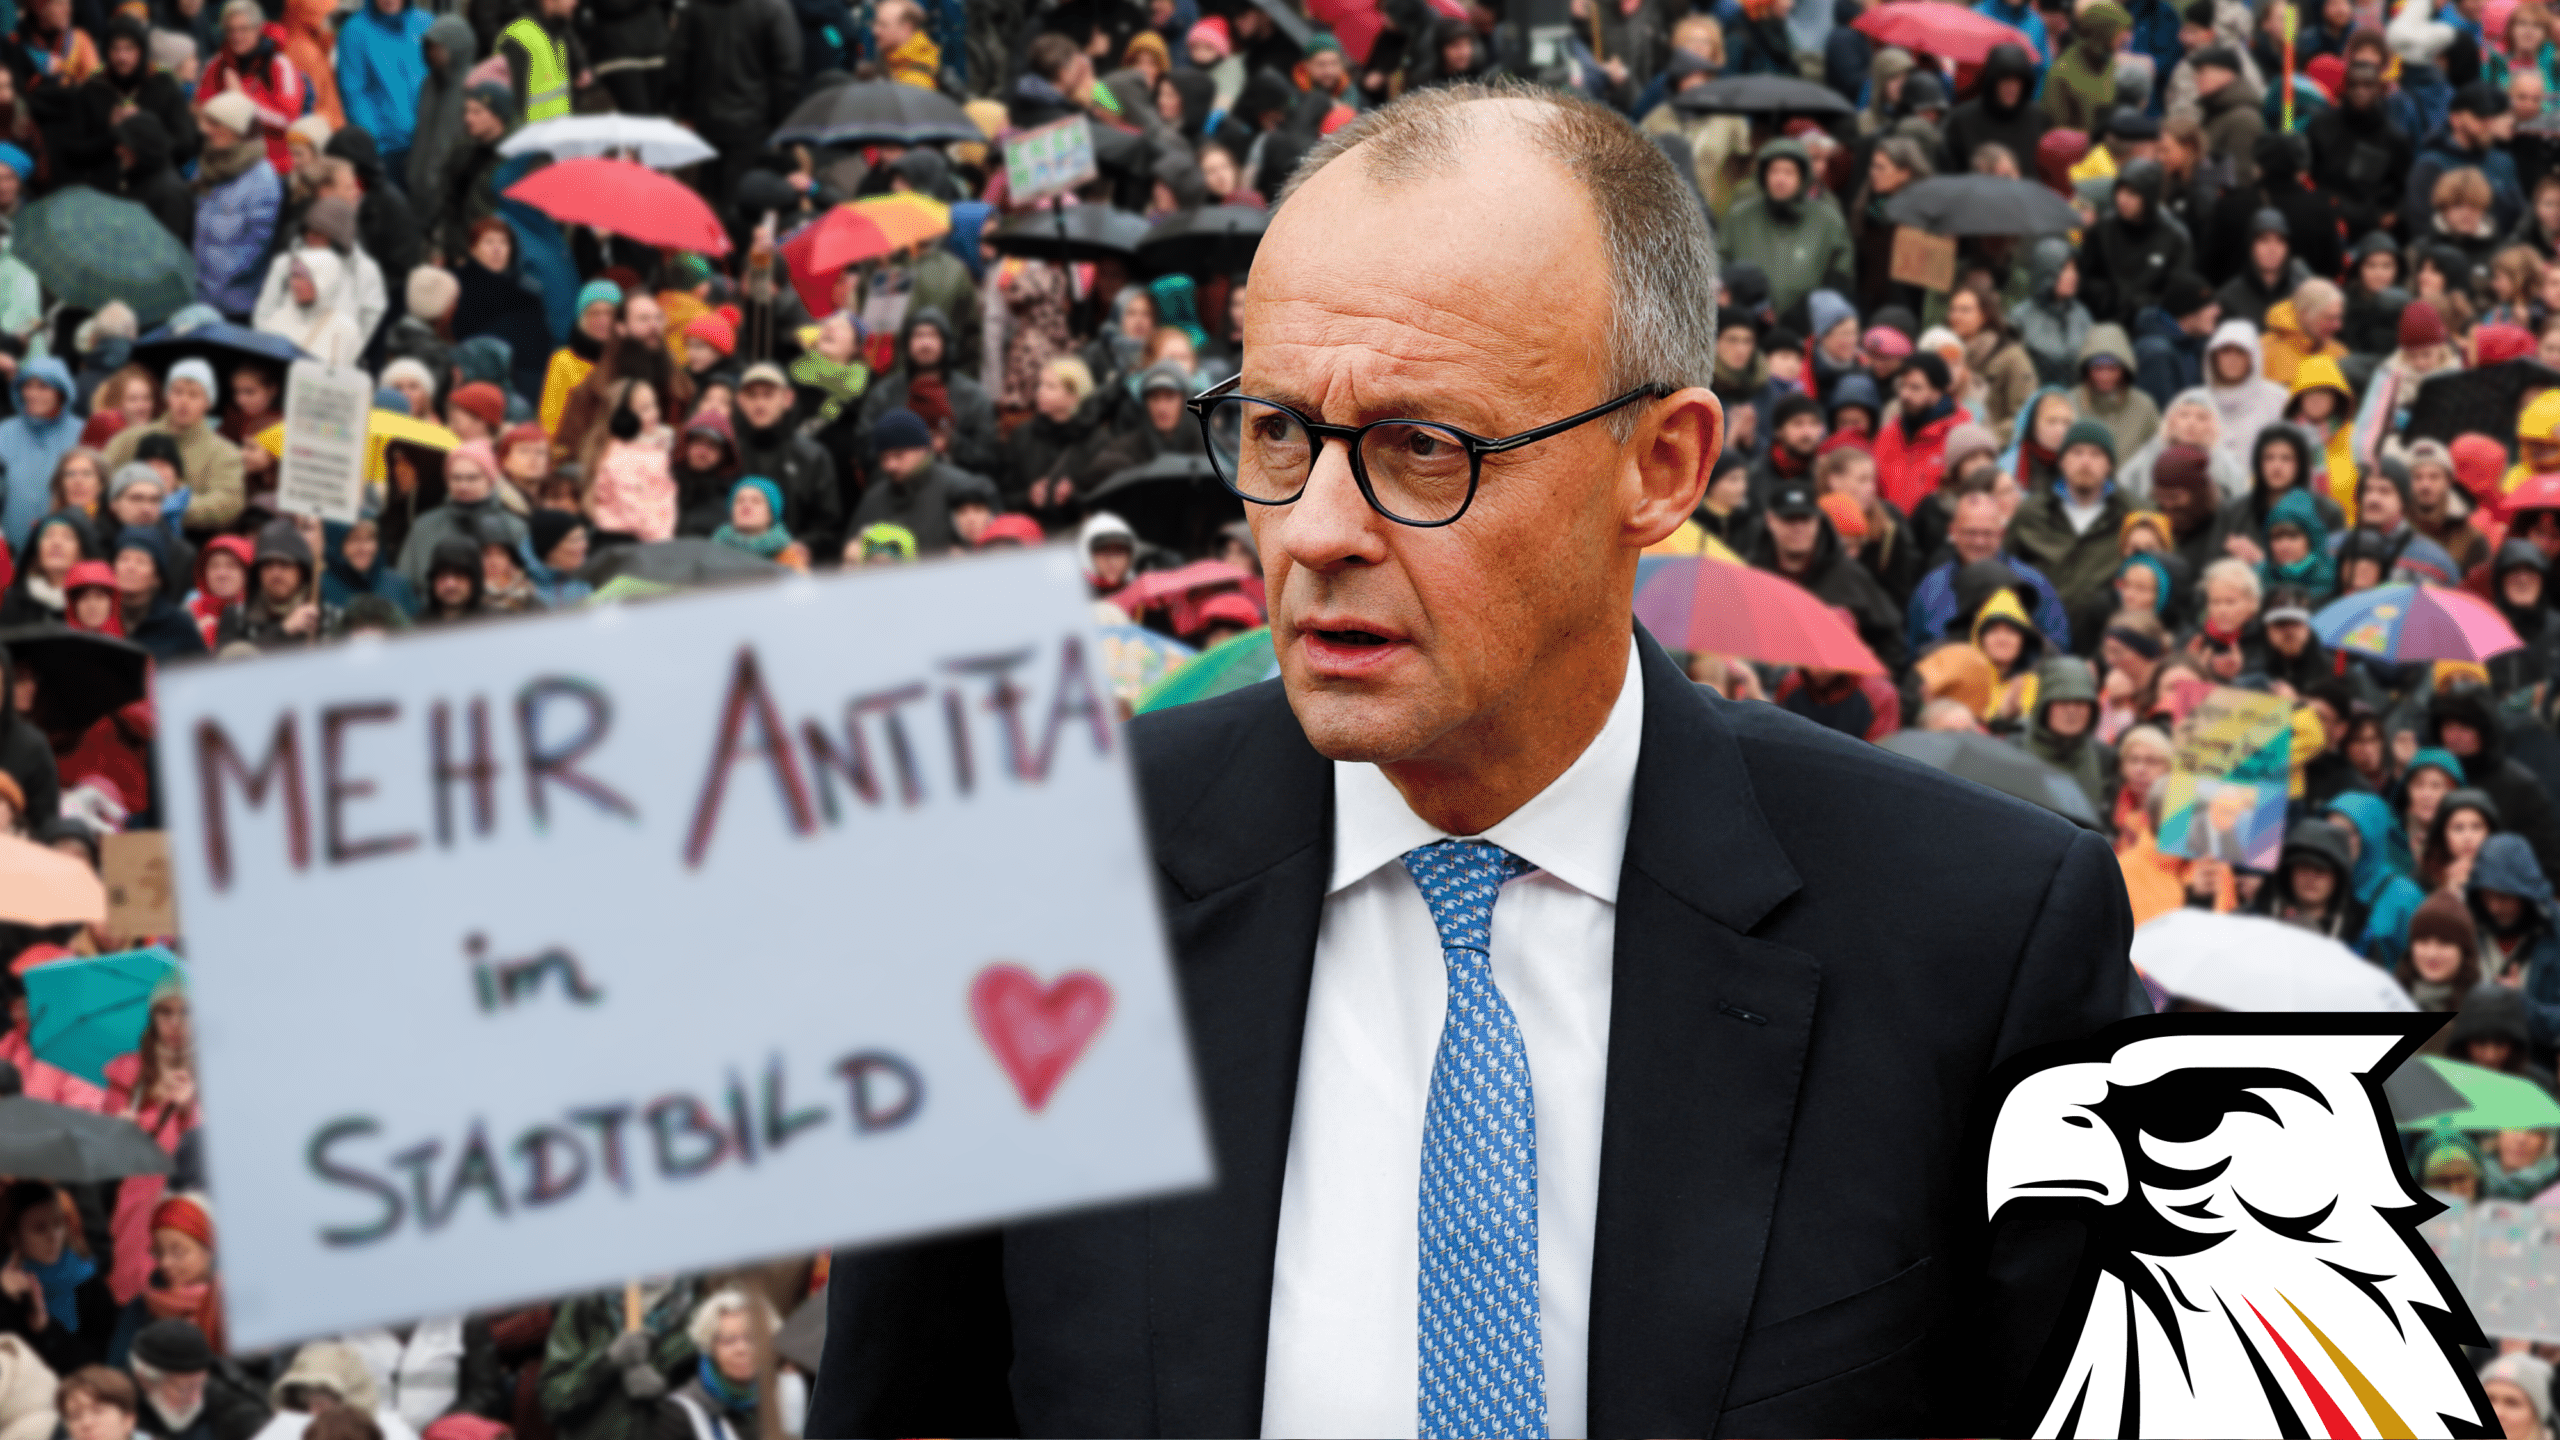 MEHR ANTIFA
im
STADTBILD